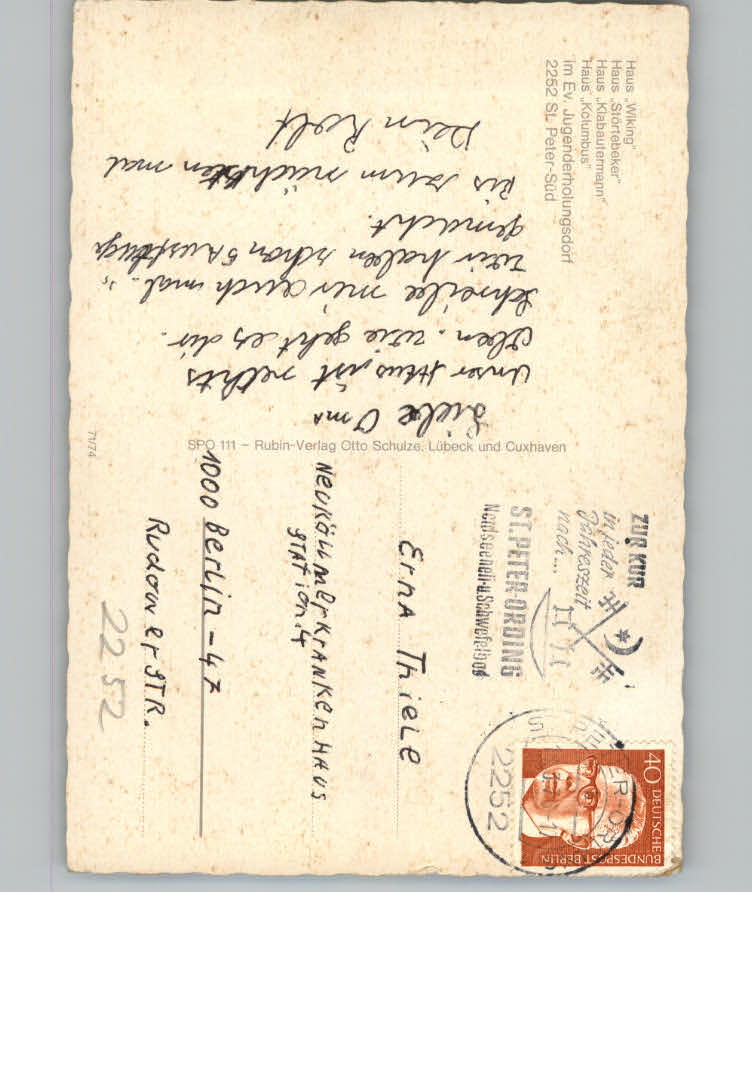 Haus „Wiking“
Haus „Störtebeker“
Haus „Klabautermann“
Haus „Kolumbus“
im Ev. Jugenderholungsdorf
2252 St. Peter-Süd
Liebe Oma
unser Haus ist rechts
oben. wie geht es dir.
Schreibe mir auch mal.
wir haben schon 5 Ausflüge
gemacht.
Bis zum nächsten mal
Dein Rolf
SPO 111 – Rubin-Verlag Otto Schulze, Lübeck und Cuxhaven
71/74
ZUR KUR
in jeder
Jahreszeit
nach...
ST. PETER-ORDING
Nordseeheil-u. Schwefelbad
40 DEUTSCHE
BUNDESPOST BERLIN
2252
ErnA ThieLe
NeuköllnerKrankenHAUS
STATion.4
1000 Berlin-47
Rudower STR.
2252